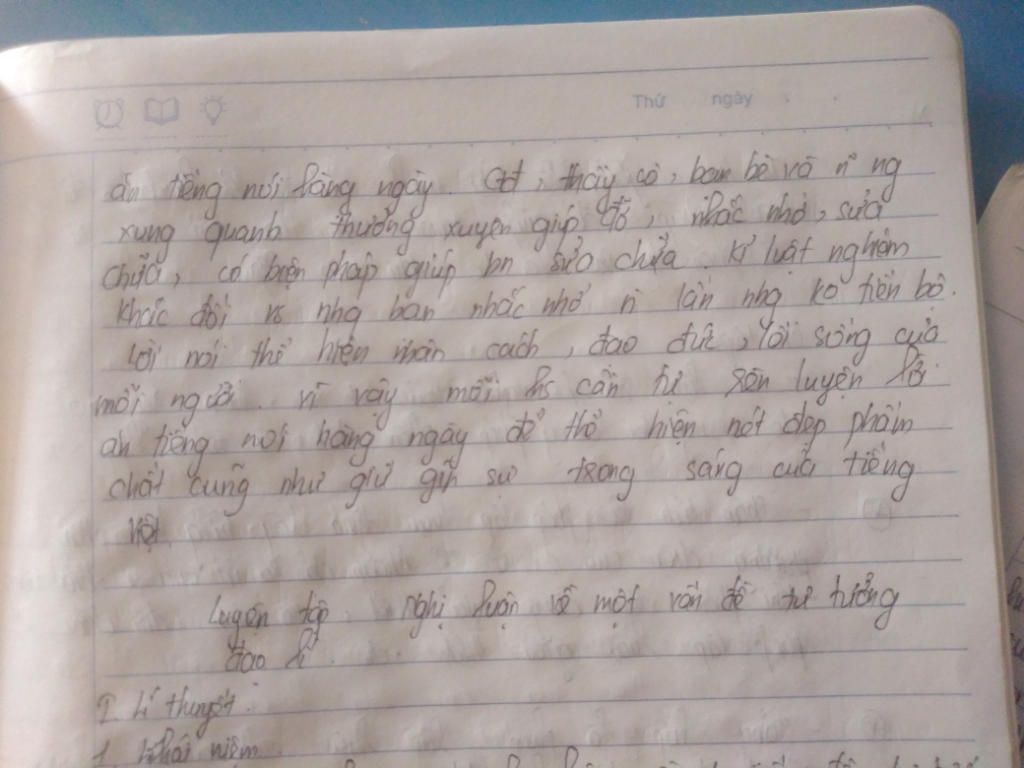 Thứ ngày
ăn tiếng nói hàng ngày. Gđ, thầy cô, bạn bè và n~ ng
xung quanh thường xuyên giúp đỡ, nhắc nhở, sửa
chữa, có biện pháp giúp bn sửa chữa. Kỉ luật nghiêm
khắc đối vs nhg bạn nhắc nhở n` lần nhg ko tiến bộ.
Lời nói thể hiện nhân cách, đạo đức, lối sống của
mỗi người. vì vậy mỗi hs cần tự rèn luyện lời
ăn tiếng nói hàng ngày để thể hiện nét đẹp phẩm
chất cũng như giữ gìn sự trong sáng của tiếng
Việt.
Luyện tập. Nghị luận về một vấn đề tư tưởng
đạo lí.
I. Lí thuyết.
1. Khái niệm